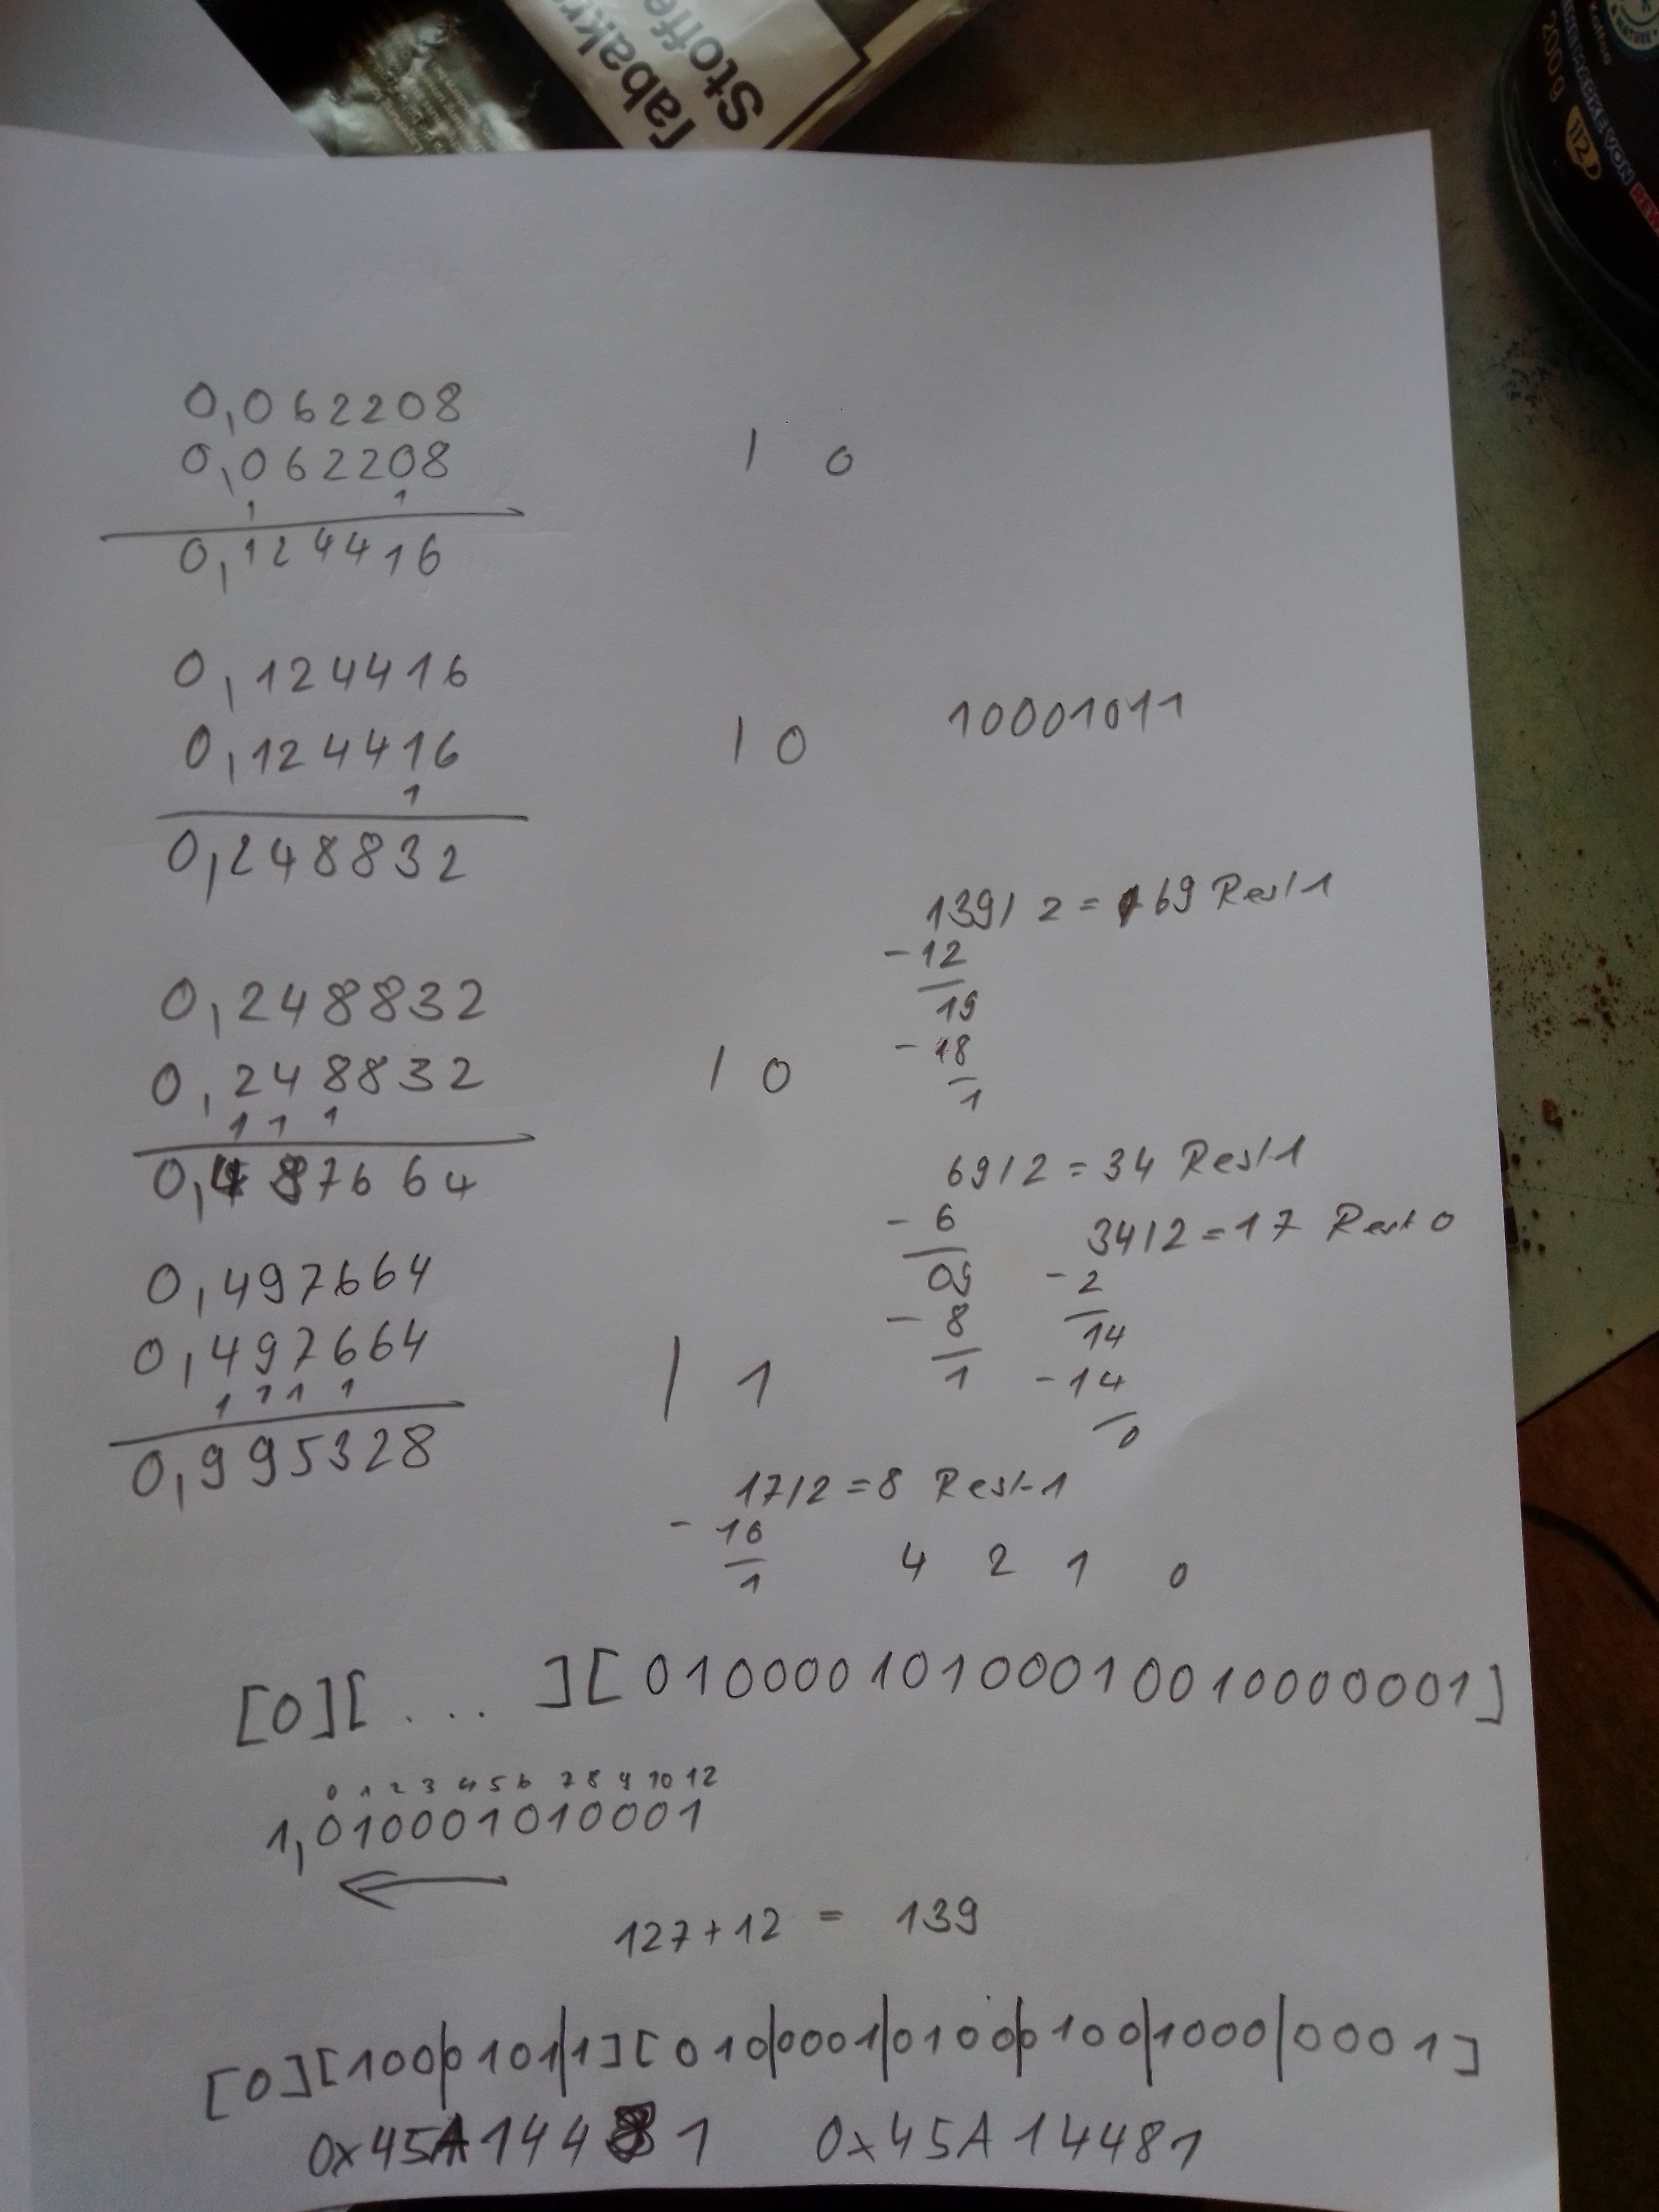 Tabakr
Stoffe
Kaffee
200 g
112
0,062208
0,062208 | 0
1 1
0,124416
0,124416
0,124416 | 0
1
0,248832
10001011
0,248832
0,248832 | 0
1 1 1
0,487664
0,497664
0,497664 | 1
1 1 1 1
0,995328
139/2 = 69 Rest 1
-12
19
-18
1
69/2 = 34 Rest 1
-6
09
-8
1
34/2 = 17 Rest 0
-2
14
-14
0
17/2 = 8 Rest 1
-16
1
4 2 1 0
[0][ . . . ][010000101000100100000​01]
0 1 2 3 4 5 6 7 8 9 10 12
1,010001010001
127 + 12 = 139
[0][100|0101|1][010|0001|0100|0100|1000|0001]
0x45A14481 0x45A14481